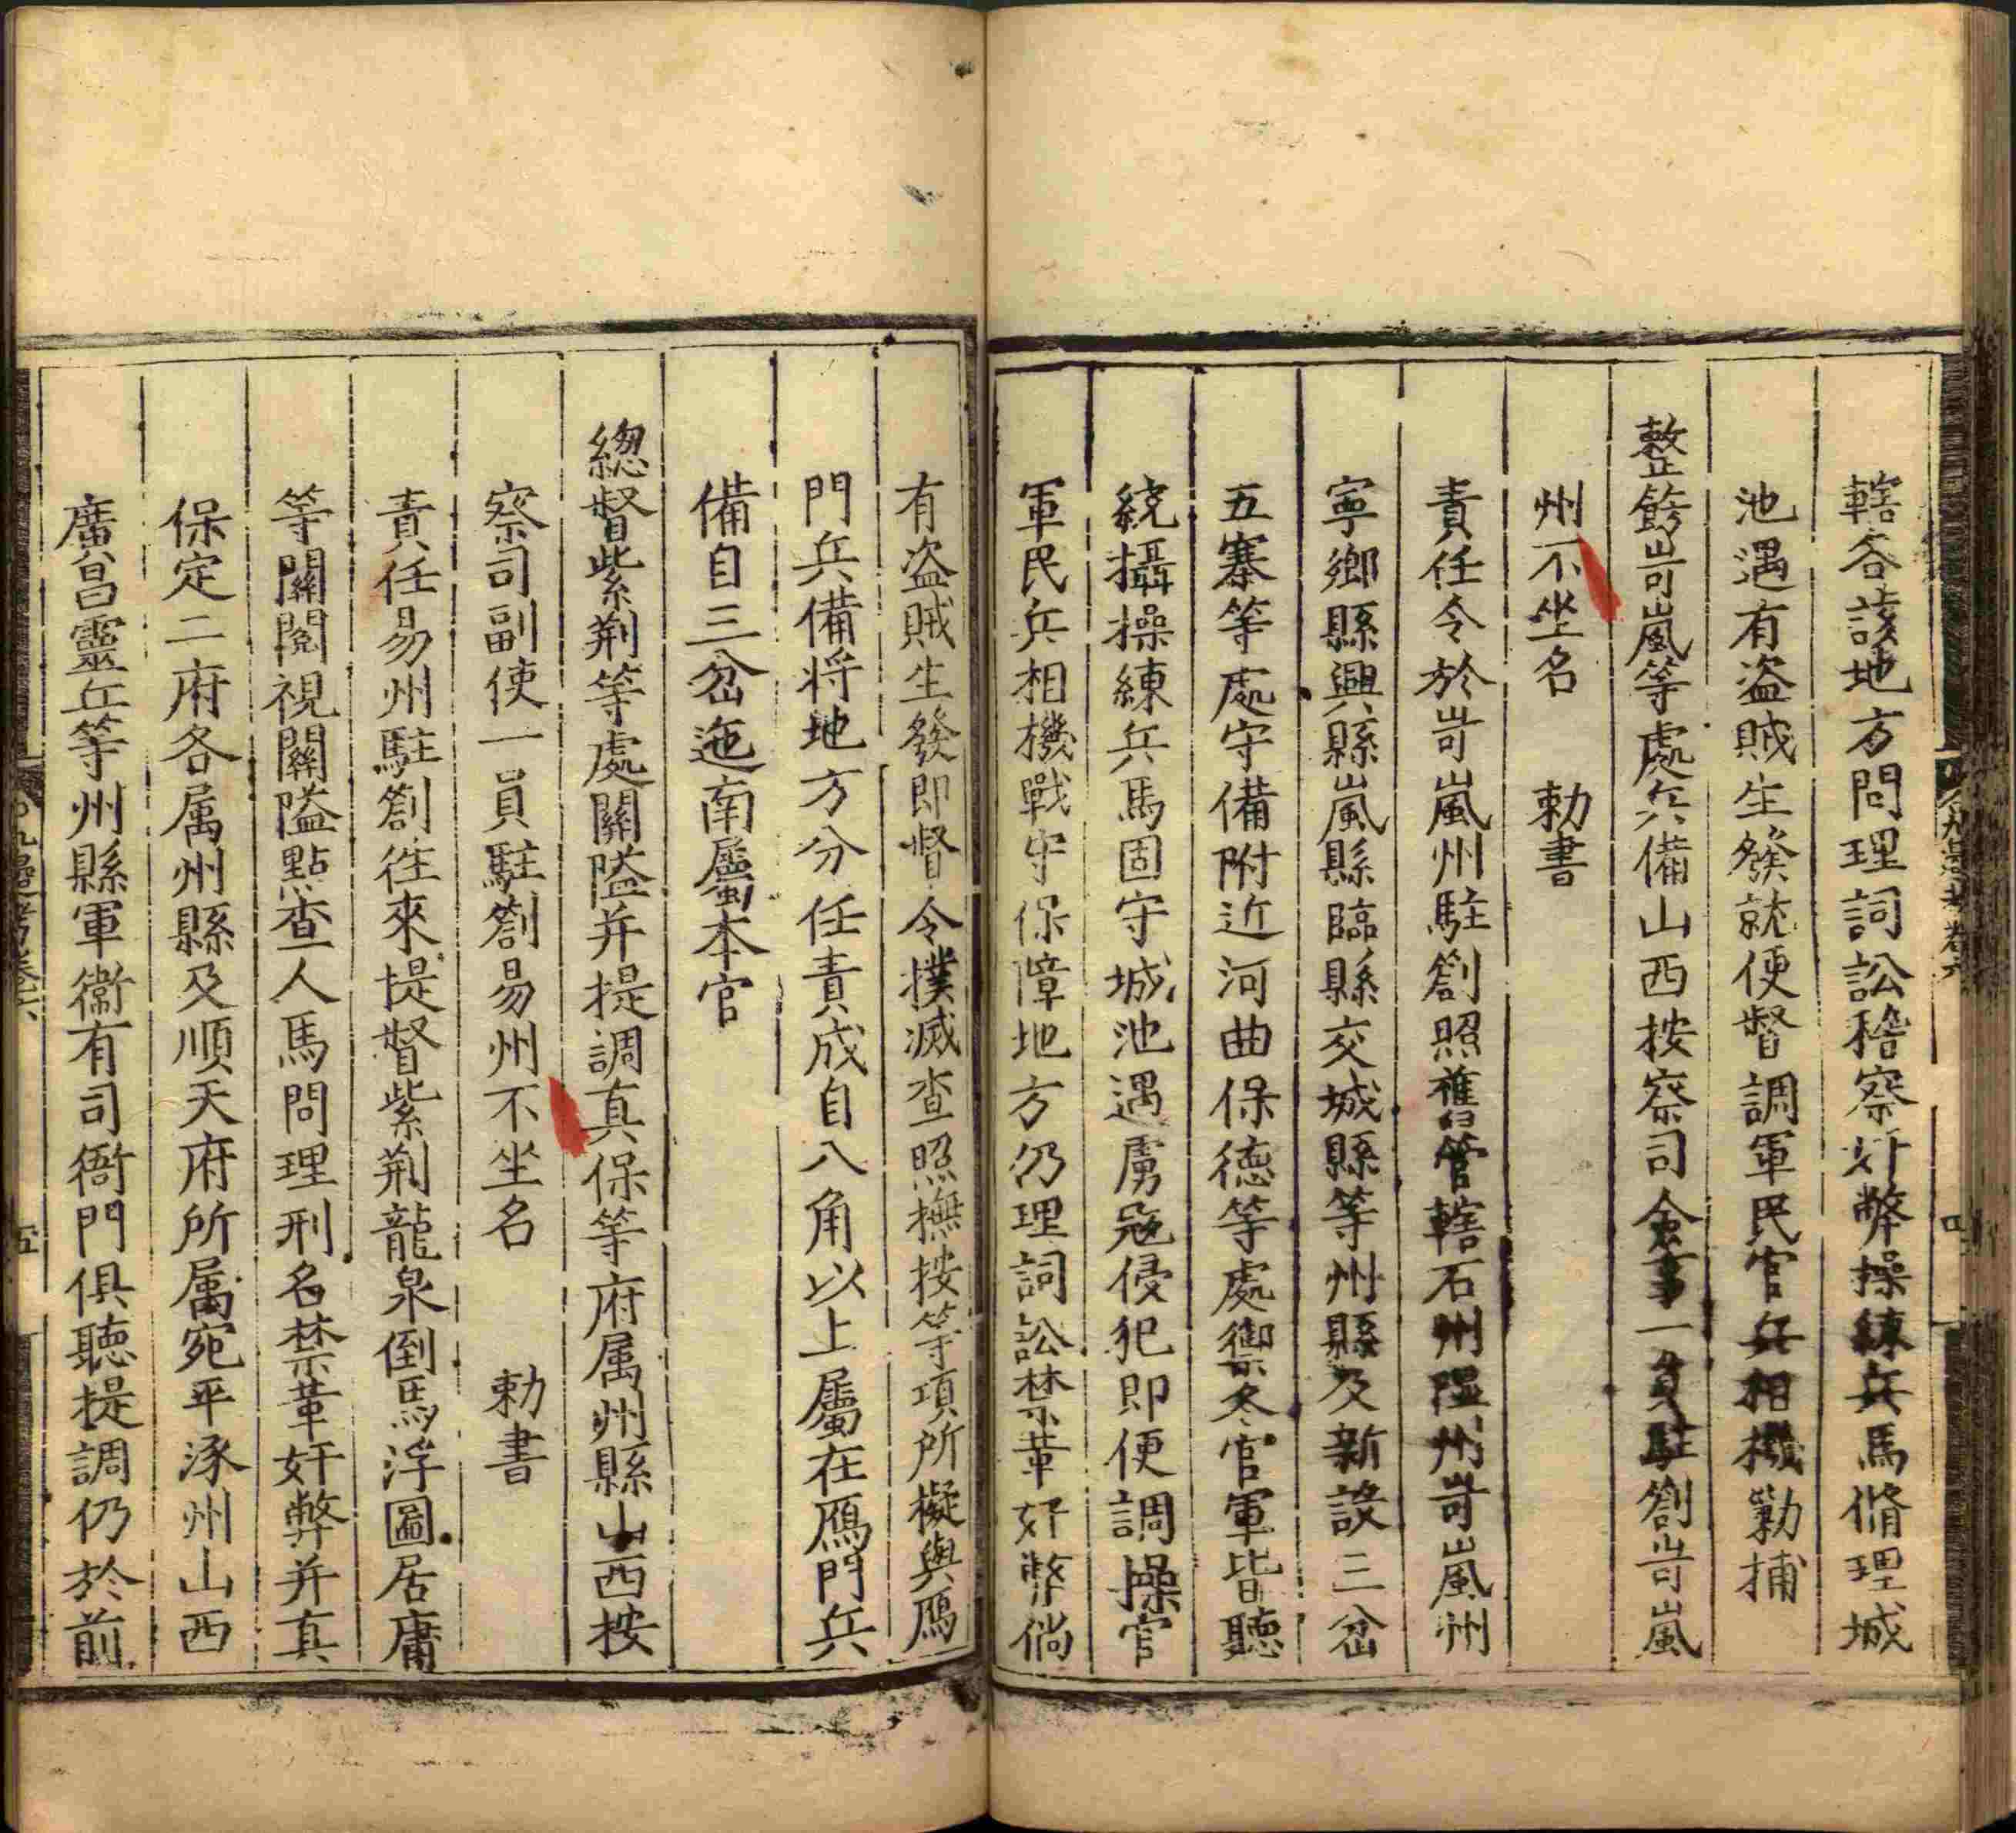 轄各該地方問理詞訟稽察奸弊操練兵馬脩理城
池遇有盗賊生發就便督調軍民官兵相機勦捕
整飭岢嵐等處兵備山西按察司僉事一員駐劄岢嵐
州不坐名　勅書
責任令於岢嵐州駐劄照舊管轄石州隰州岢嵐州
寧鄉縣興縣嵐縣臨縣交城縣等州縣及新設三岔
五寨等處守備附近河曲保德等處禦冬官軍皆聽
統攝操練兵馬固守城池遇虜寇侵犯即便調操官
軍民兵相機戰守保障地方仍理詞訟禁革奸弊倘
有盗賊生發即督令撲滅查照撫按等項所擬與鴈
門兵備将地方分任責成自八角以上屬在鴈門兵
備自三岔迤南屬本官
總督紫荆等處關隘并提調真保等府属州縣山西按
察司副使一員駐劄易州不坐名　勅書
責任易州駐劄徃來提督紫荆龍泉倒馬浮圖居庸
等關閱視關隘點查人馬問理刑名禁革奸弊并真
保定二府各属州縣及順天府所属宛平涿州山西
廣昌靈丘等州縣軍衞有司衙門俱聽提調仍於前